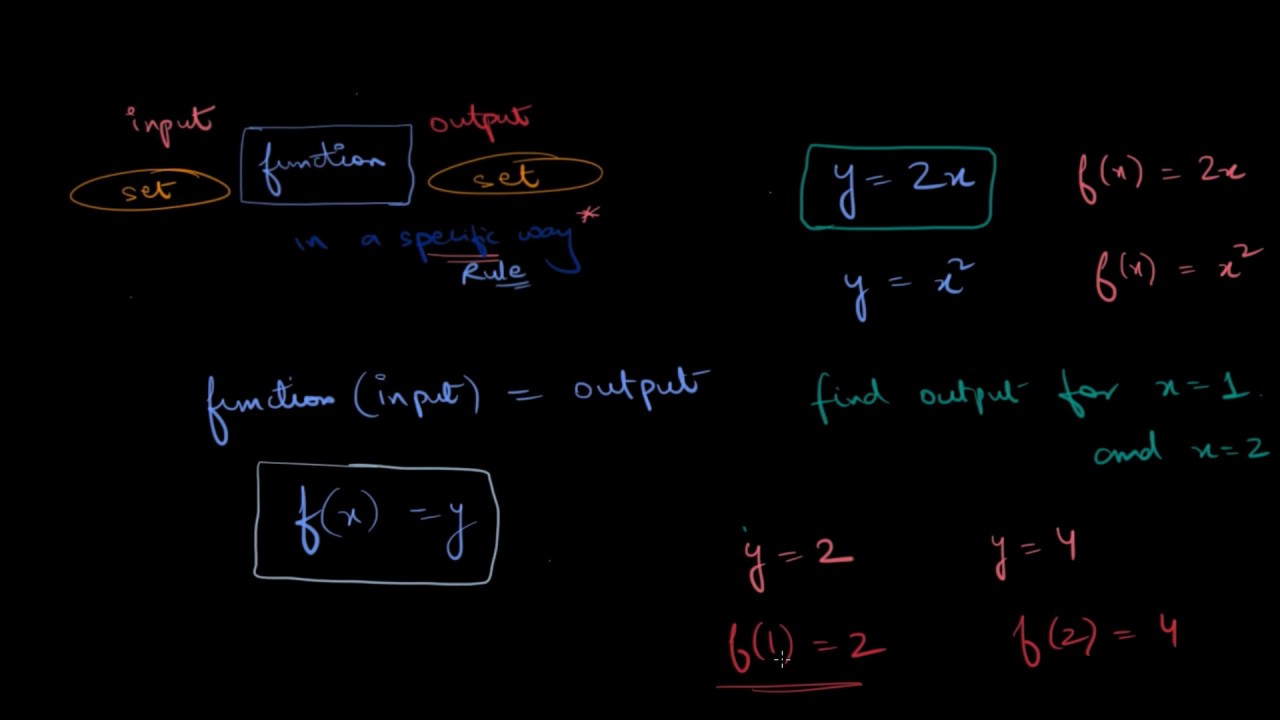 input
output
function
set
set
in a specific way*
Rule
function (input) = output
f(x) = y
y = 2x
f(x) = 2x
y = x²
f(x) = x²
find output for x=1.
and x=2
y = 2
y = 4
f(1) = 2
f(2) = 4